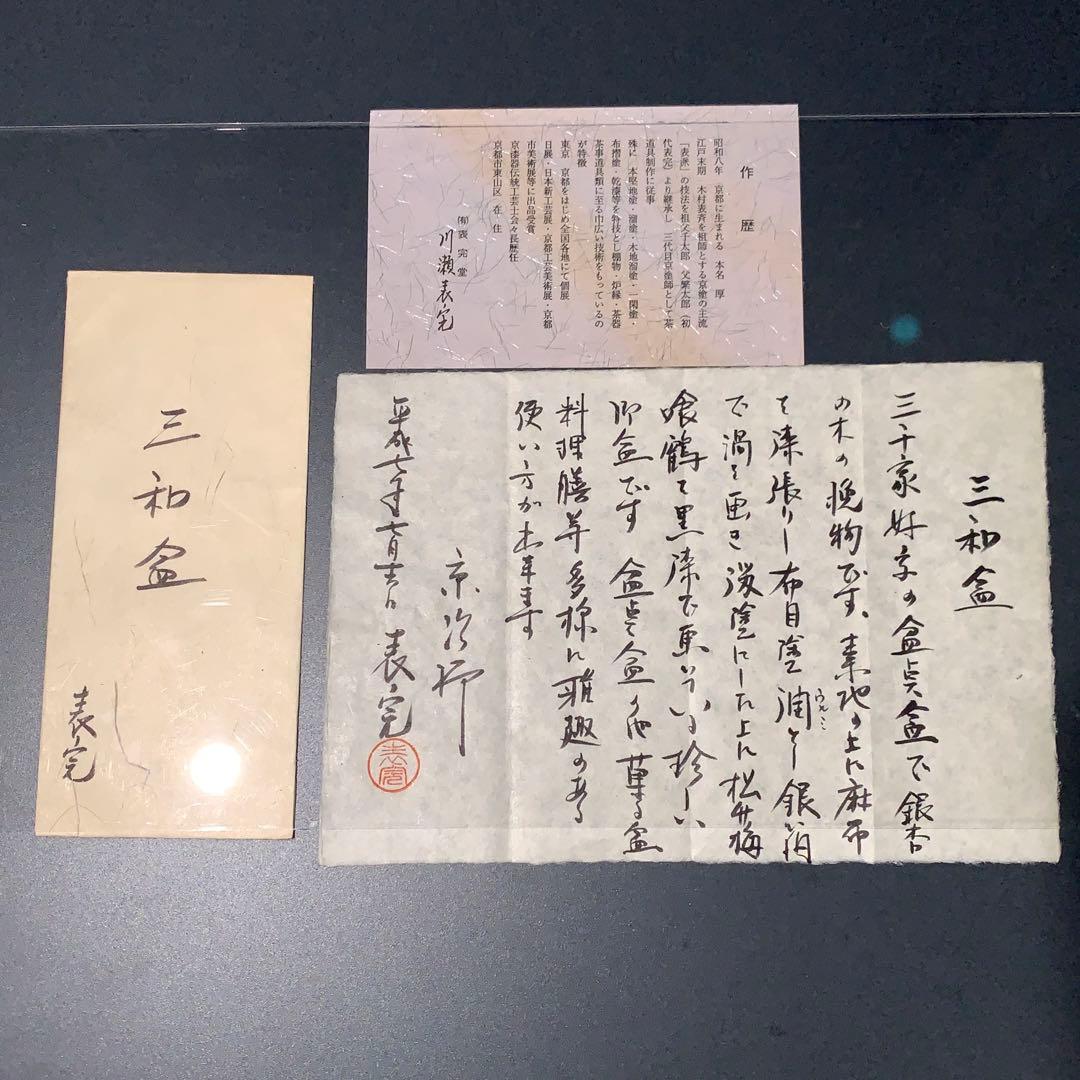 作歴
昭和八年 京都に生まれる 本名 厚
江戸末期 木村表斉を祖師とする京塗の主流
「表派」の技法を祖父子太郎 父繁太郎(初
代表完)より継承し 三代目京塗師として茶
道具制作に従事
殊に 本堅地塗・溜塗・木地溜塗・一閑塗・
布摺塗・乾漆等を特技とし棚物・炉縁・茶器
茶事道具類に至る巾広い技術をもっているの
が特徴
東京 京都をはじめ全国各地にて個展
日展・日本新工芸展・京都工芸美術展・京都
市美術展等に出品受賞
京漆器伝統工芸士会々長歴任
京都市東山区 在住
(有)表完堂
川瀬表完
三和盆
表完
三和盆
三千家好写の盆点盆で 銀杏
の木の挽物です、素地の上に麻布
を漆張りし布目塗 潤と銀箔
で渦を画き 溜塗にした上に松竹梅
喰鶴を黒漆で画いている珍しい
御盆です 盆点盆の他 菓子盆
料理膳等多様に雅趣のある
使い方が出来ます
京塗師
平成七年七月吉日 表完
表完